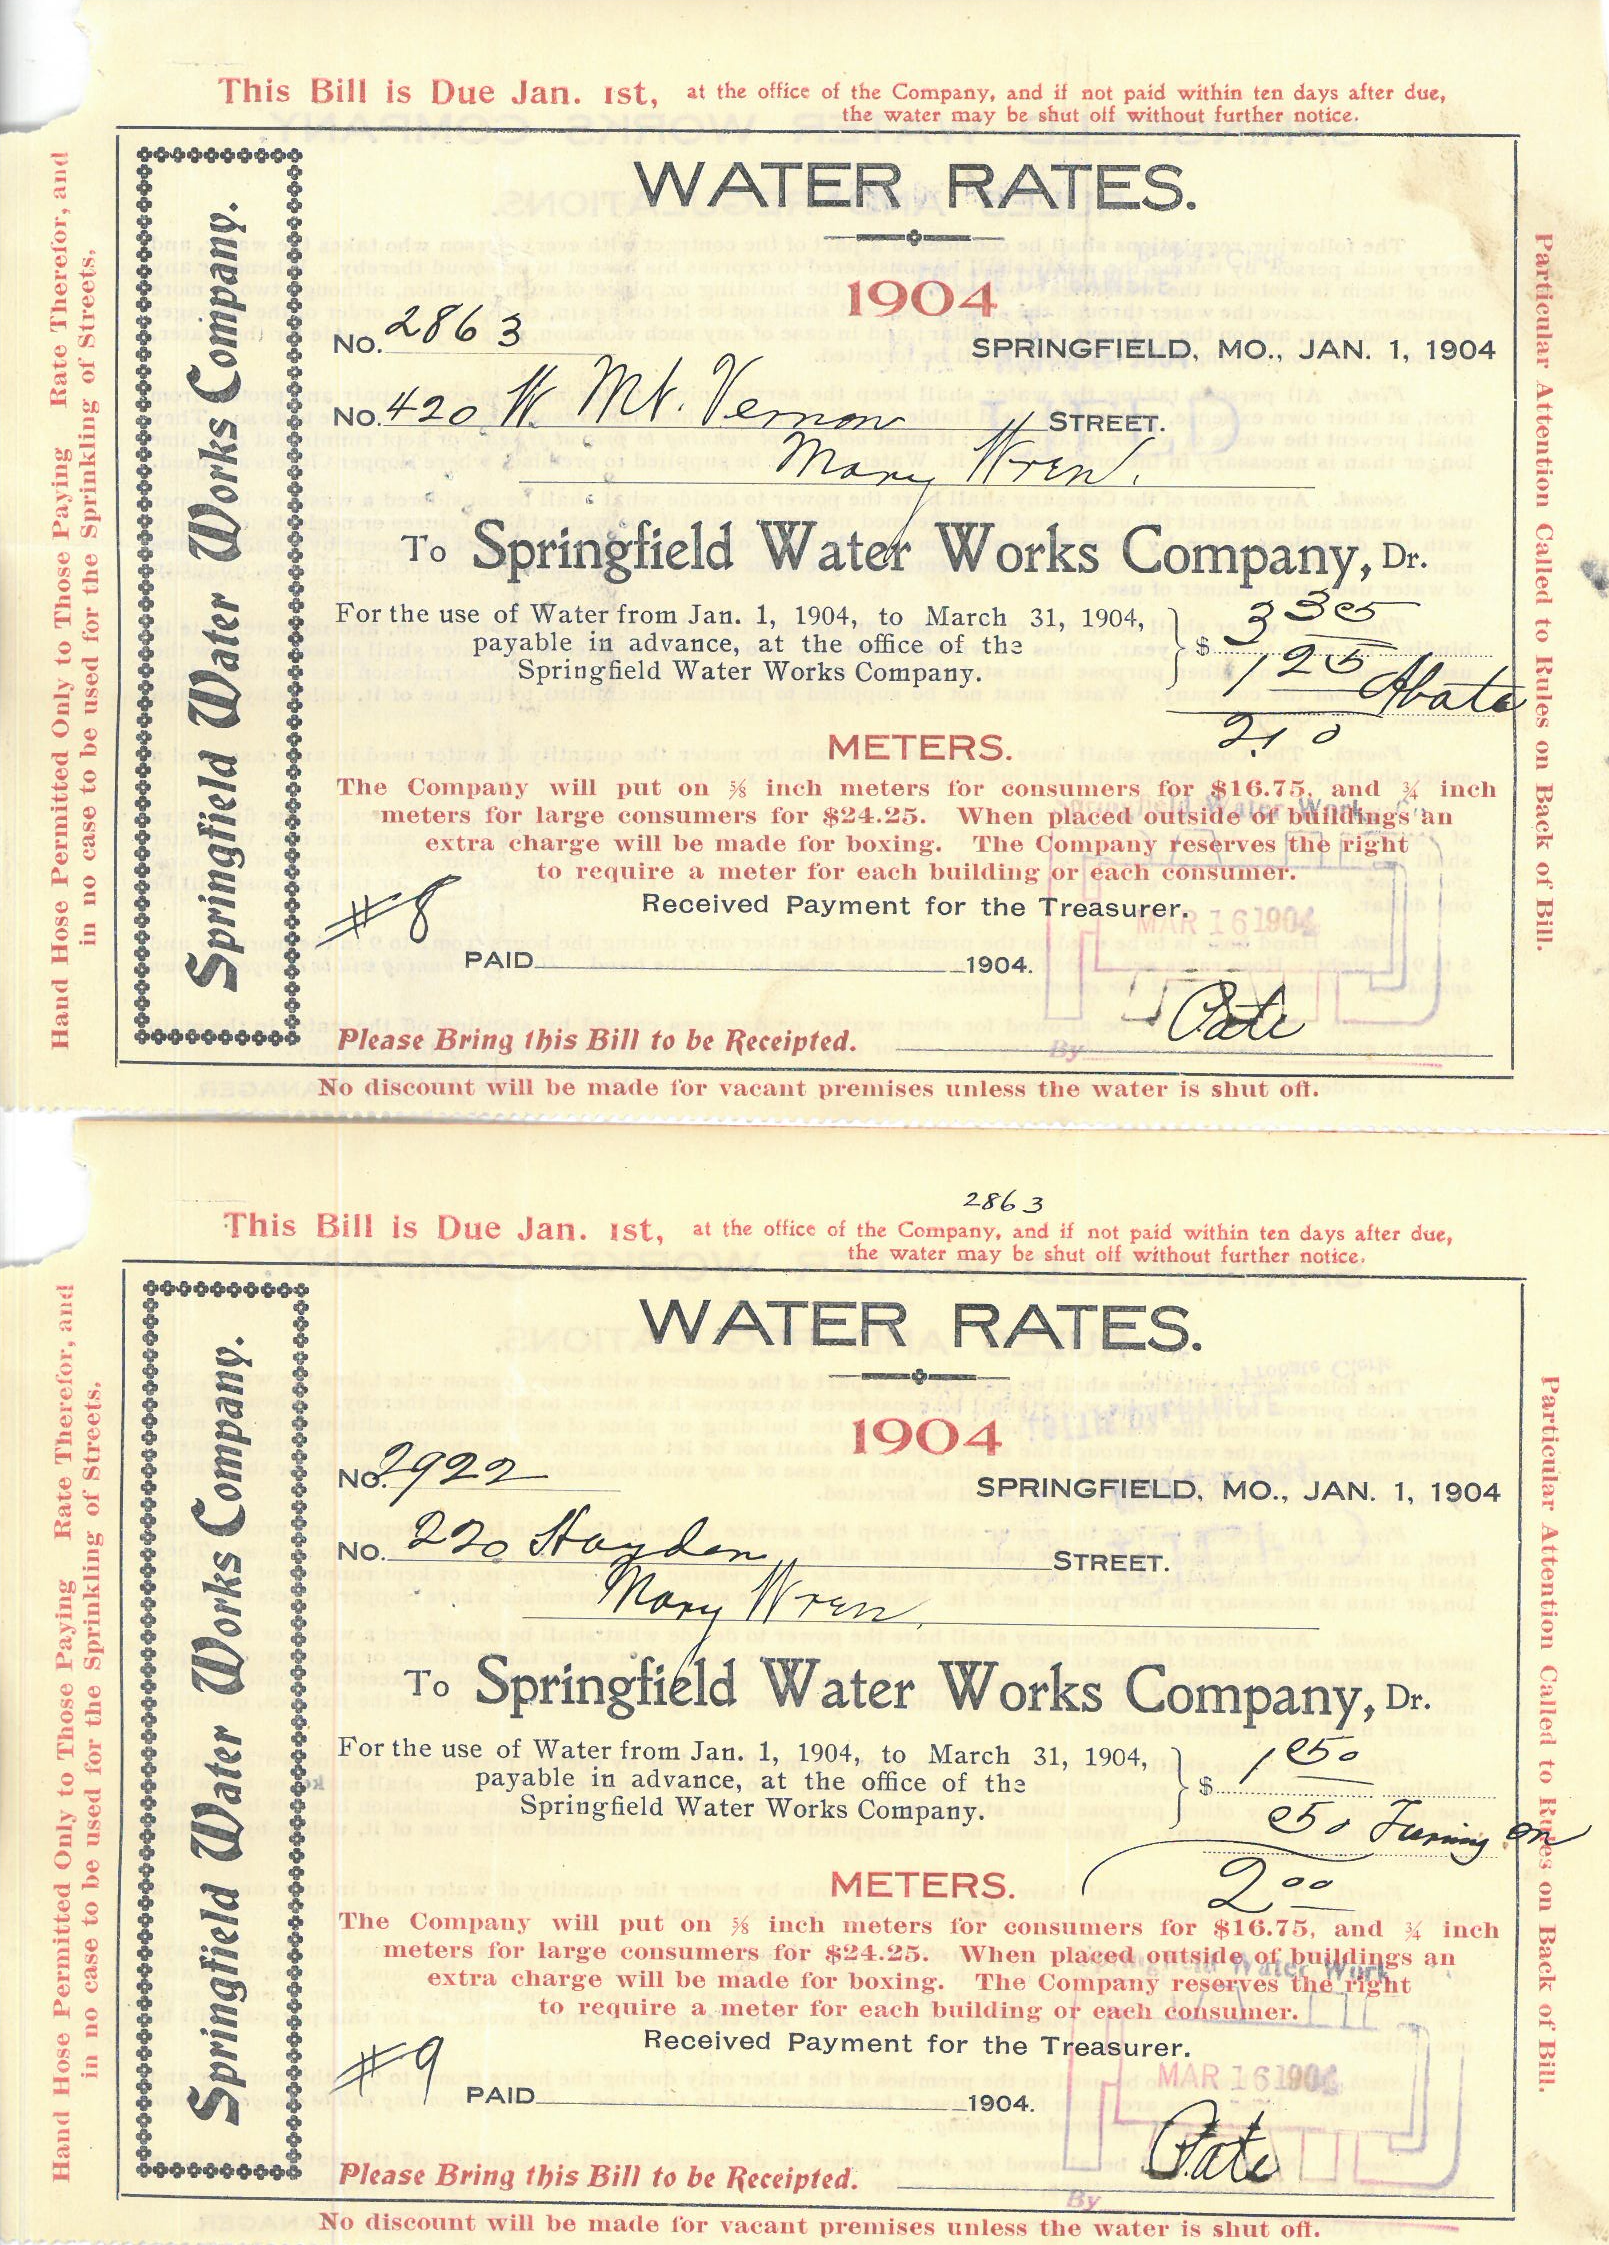 This Bill is Due Jan. 1st, at the office of the Company, and if not paid within ten days after due,
the water may be shut off without further notice.
Hand Hose Permitted Only to Those Paying Rate Therefor, and
in no case to be used for the Sprinkling of Streets.
Springfield Water Works Company.
WATER RATES.
1904
No. 2863
SPRINGFIELD, MO., JAN. 1, 1904
No. 420 W. Mt. Vernon STREET.
Mary Wren.
To Springfield Water Works Company, Dr.
For the use of Water from Jan. 1, 1904, to March 31, 1904,
payable in advance, at the office of the
Springfield Water Works Company.
$ 3 35
1 25 Abate
2.10
METERS.
The Company will put on ⅝ inch meters for consumers for $16.75, and ¾ inch
meters for large consumers for $24.25. When placed outside of buildings an
extra charge will be made for boxing. The Company reserves the right
to require a meter for each building or each consumer.
Springfield Water Work
Received Payment for the Treasurer.
#8
MAR 16 1904
PAID 1904.
PAID
Pate
Please Bring this Bill to be Receipted.
By
No discount will be made for vacant premises unless the water is shut off.
Particular Attention Called to Rules on Back of Bill.
2863
This Bill is Due Jan. 1st, at the office of the Company, and if not paid within ten days after due,
the water may be shut off without further notice.
Hand Hose Permitted Only to Those Paying Rate Therefor, and
in no case to be used for the Sprinkling of Streets.
Springfield Water Works Company.
WATER RATES.
1904
No. 2922
SPRINGFIELD, MO., JAN. 1, 1904
No. 220 Hayden STREET.
Mary Wren
To Springfield Water Works Company, Dr.
For the use of Water from Jan. 1, 1904, to March 31, 1904,
payable in advance, at the office of the
Springfield Water Works Company.
$ 1 50
50 Turning on
2 00
METERS.
The Company will put on ⅝ inch meters for consumers for $16.75, and ¾ inch
meters for large consumers for $24.25. When placed outside of buildings an
extra charge will be made for boxing. The Company reserves the right
to require a meter for each building or each consumer.
Springfield Water Work
Received Payment for the Treasurer.
#9
MAR 16 1904
PAID 1904.
PAID
Pate
Please Bring this Bill to be Receipted.
By
No discount will be made for vacant premises unless the water is shut off.
Particular Attention Called to Rules on Back of Bill.